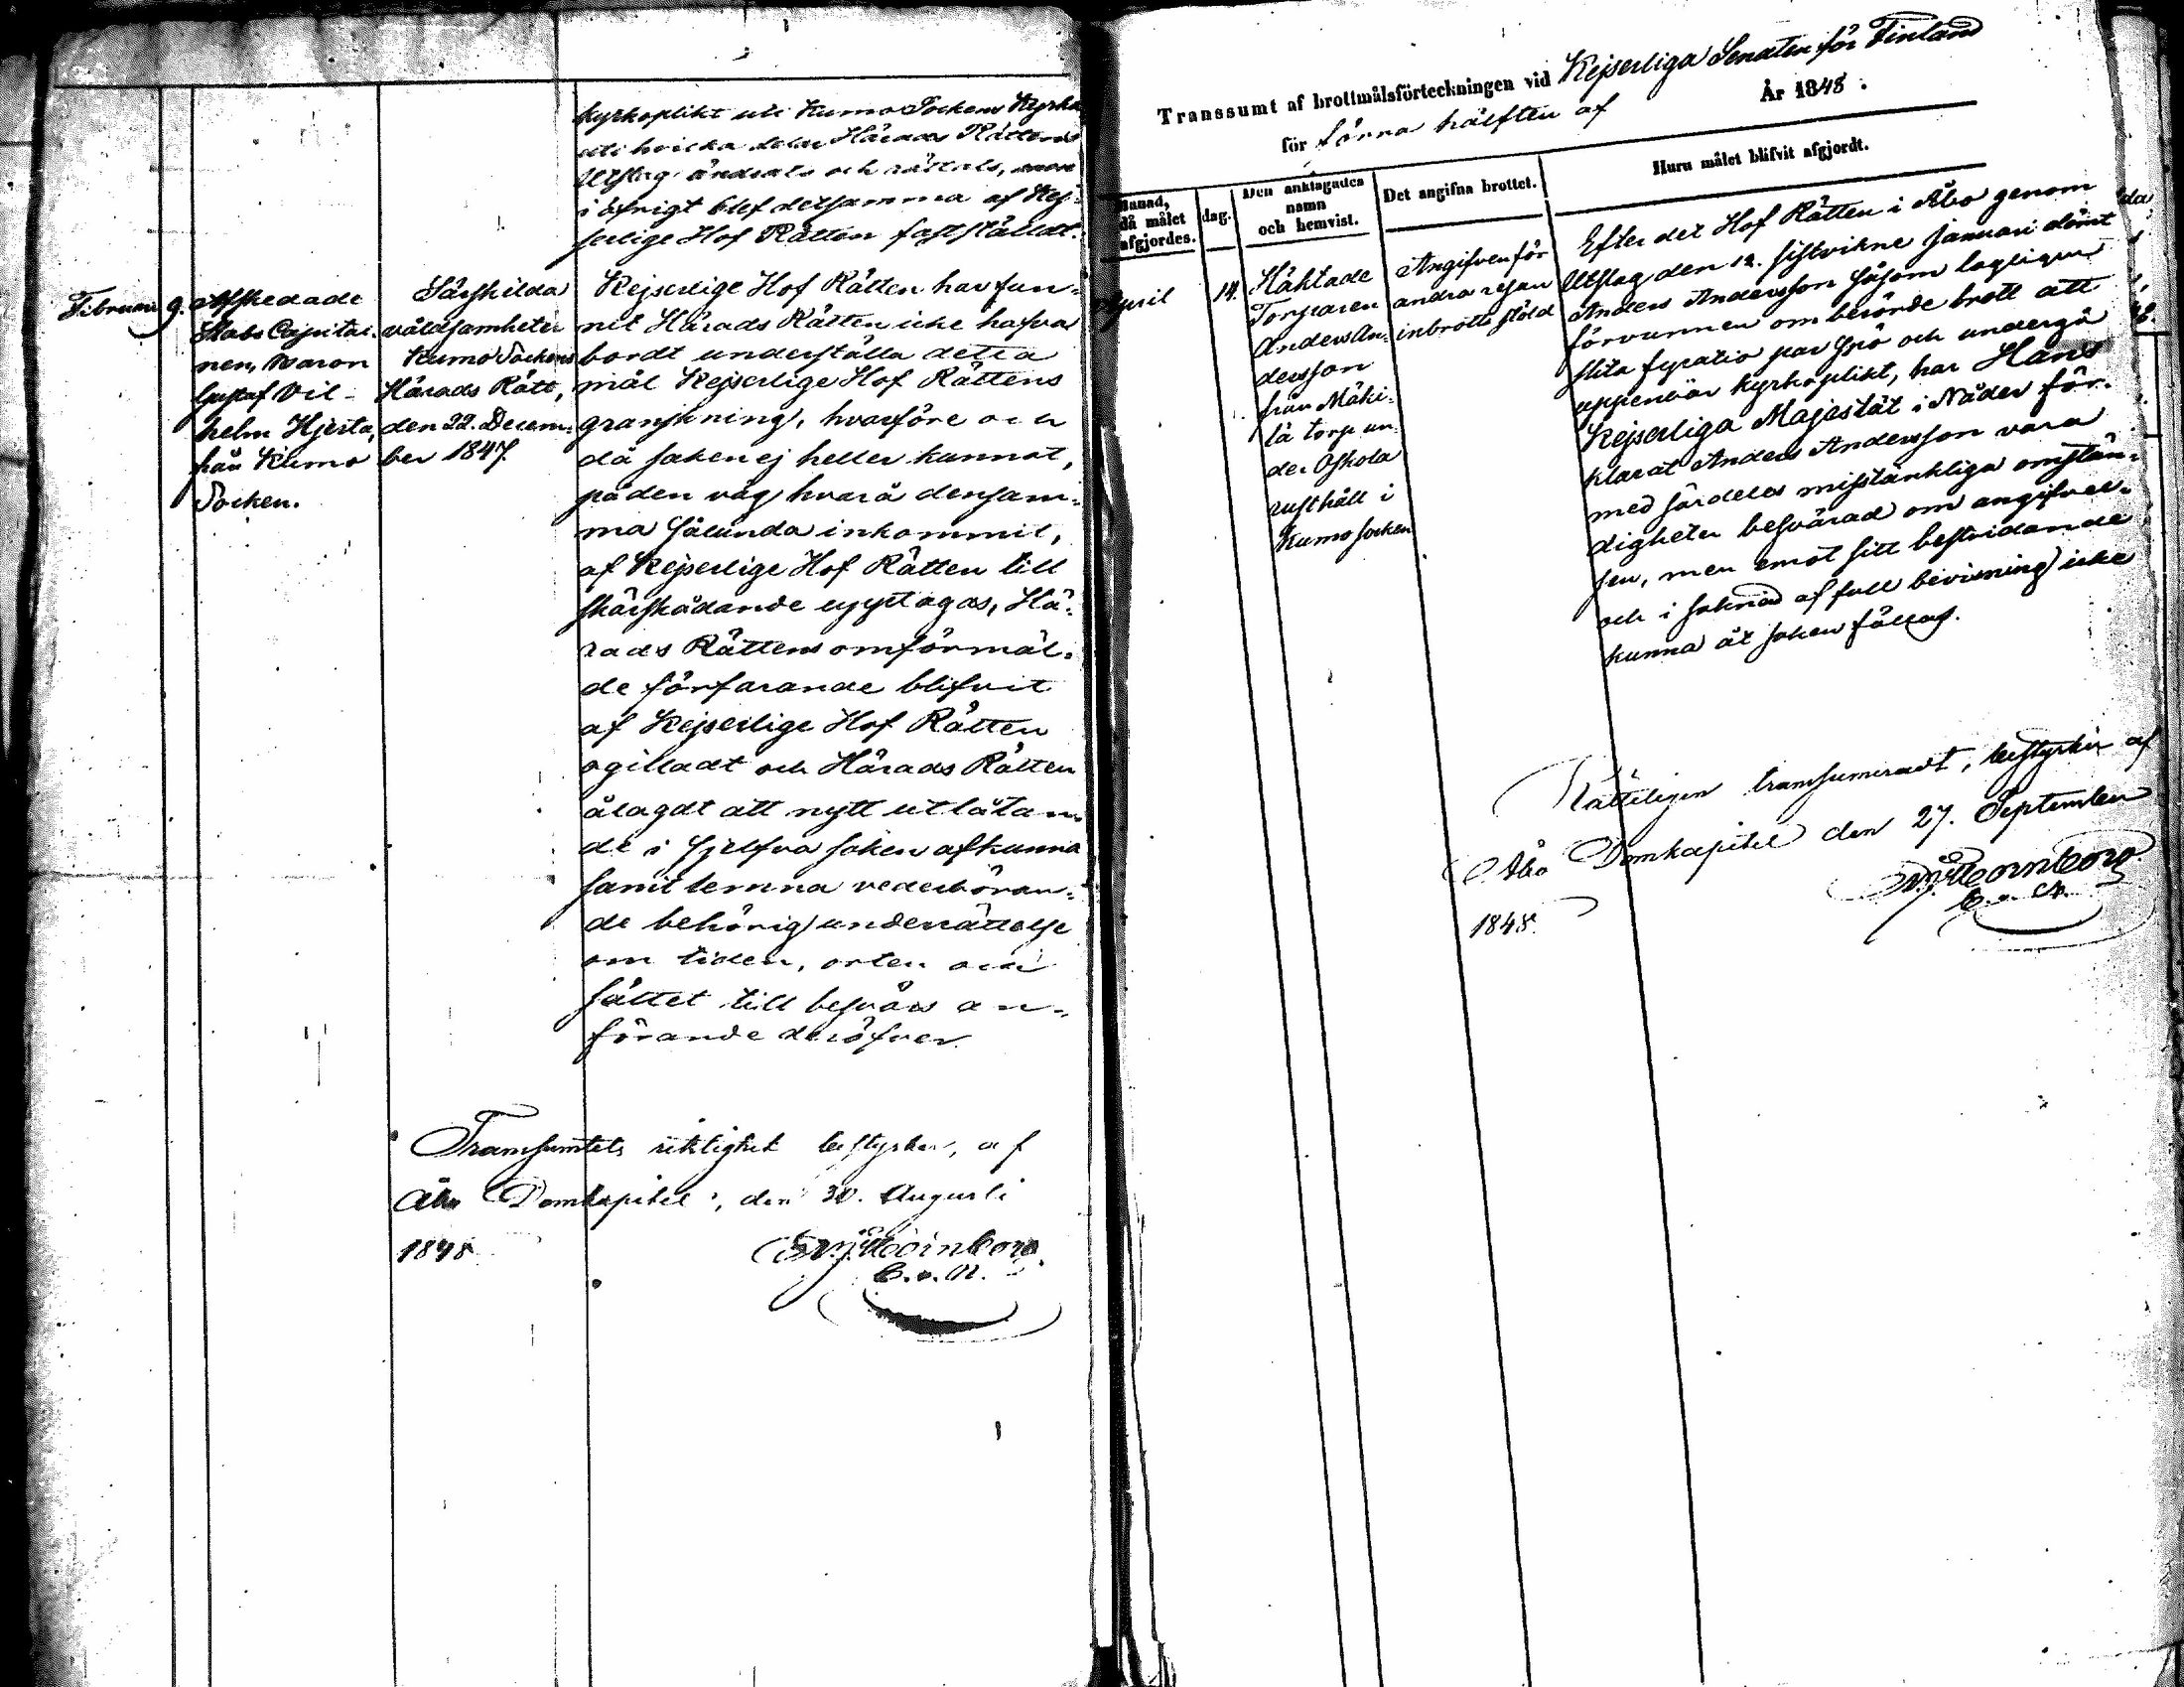 kyrkoplikt uti Kumo Sockens Kyrka
uti hvilka delar Härads Rättens
Utslag ändrats och rättats, men
i öfrigt blef detsamma af Kej-
serlige Hof Rätten fastställdt.
Februari 9.
Afskedade
Stabs Capitai-
nen, Baron
Gustaf Vil-
helm Hjerta,
från Kumo
Socken.
Särskilda
våldsamheter
Kumo Sockens
Härads Rätt,
den 22. Decem-
ber 1847.
Kejserlige Hof Rätten har fun-
nit Härads Rätten icke hafva
bordt underställa detta
mål Kejserlige Hof Rättens
granskning, hvarföre och
då saken ej heller kunnat,
på den väg, hvarå densam-
ma sålunda inkommit,
af Kejserlige Hof Rätten till
skärskådande upptagas, Hä-
rads Rättens omförmäl-
de förfarande blifvit
af Kejserlige Hof Rätten
ogilladt och Härads Rätten
ålagdt att nytt utlåtan-
de i sjelfva saken afkunna
samt lemna vederböran-
de behörig underrättelse
om tiden, orten och
sättet till besvärs an-
förande deröfver.
Transsumtets riktighet bestyrker, af
Åbo Domkapitel, den 30. Augusti
1848
Transsumt af brottmålsförteckningen vid Kejserliga Senaten för Finland
för förra hälften af År 1848.
Månad,
då målet
afgjordes.
dag.
Den anklagades
namn
och hemvist.
Det angifna brottet.
Huru målet blifvit afgjordt.
April
14.
Häktade
Torparen
Anders An-
dersson
från Mäki-
lä torp un-
der Askola
rusthåll i
Kumo socken
Angifven för
andra resan
inbrotts stöld
Efter det Hof Rätten i Åbo genom
Utslag den 12. sistvikne Januari dömt
Anders Andersson såsom lagligen
förvunnen om berörde brott att
slita fyratio par spö och undergå
uppenbar kyrkoplikt, har Hans
Kejserliga Majestät i Nåder för-
klarat Anders Andersson vara
med särdeles misstänkliga omstän-
digheter besvärad om angifvel-
sen, men emot sitt bestridande
och i saknad af full bevisning icke
kunna åt saken fällas.
Rätteligen transsumeradt, bestyrker af
Åbo Domkapitel den 27. September
1848.